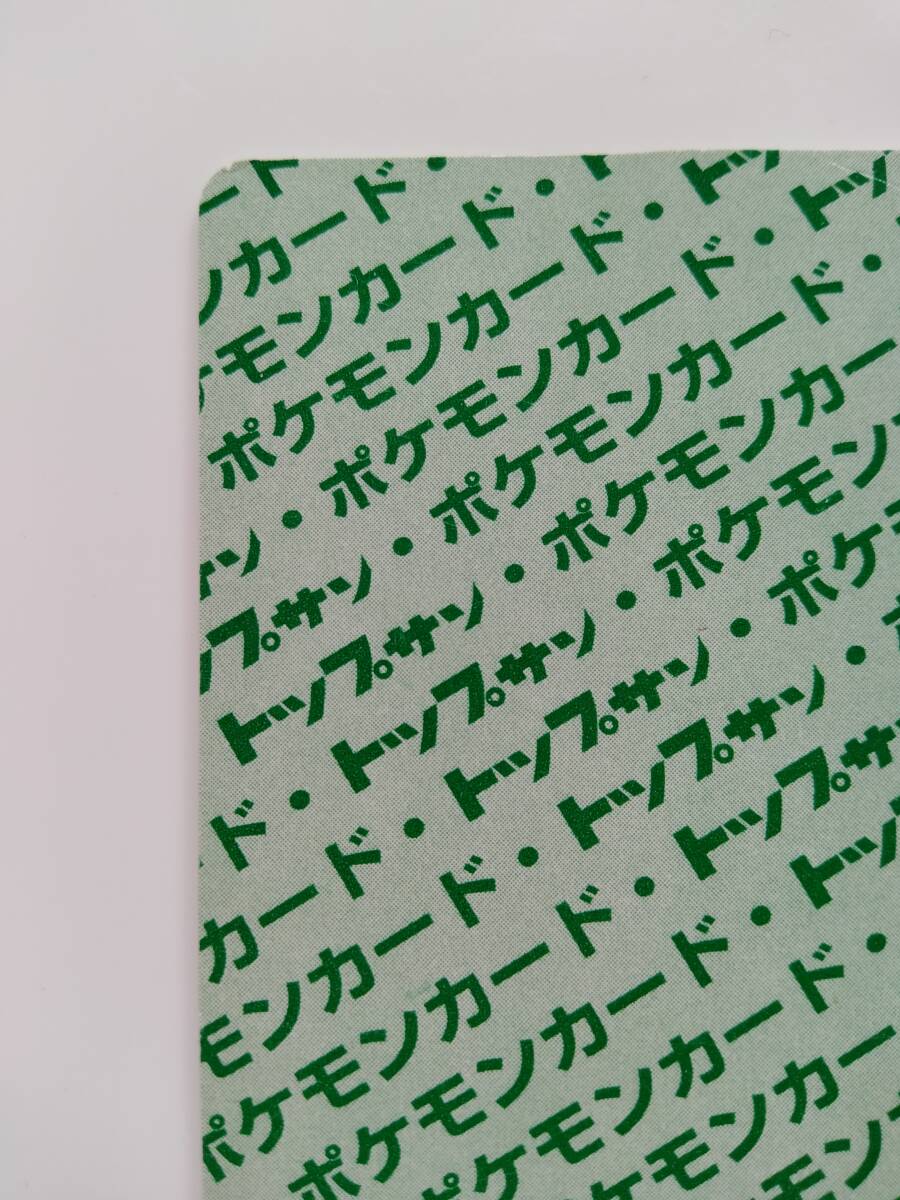 ード・
ンカード・
ケモンカード・ト
ポケモンカード・トッ
サン・ポケモンカード・トッ
ップサン・ポケモンカード・
トップサン・ポケモンカー
ド・トップサン・ポケモンカ
カード・トップサン・ポケモ
モンカード・トップサン・ポ
ポケモンカード・トップサ
ポケモンカード・トッ
ケモンカード・
モンカー